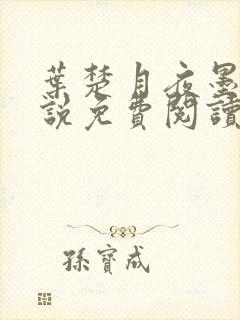 葉楚月夜墨
說免費閱讀
孫寶成